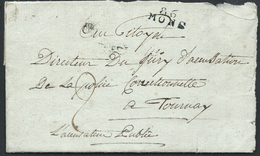 86
MONS
Au Citoyen
Directeur Du Jury D'accusation
De La Police Correctionnelle
à Tournay
L'accusateur Public